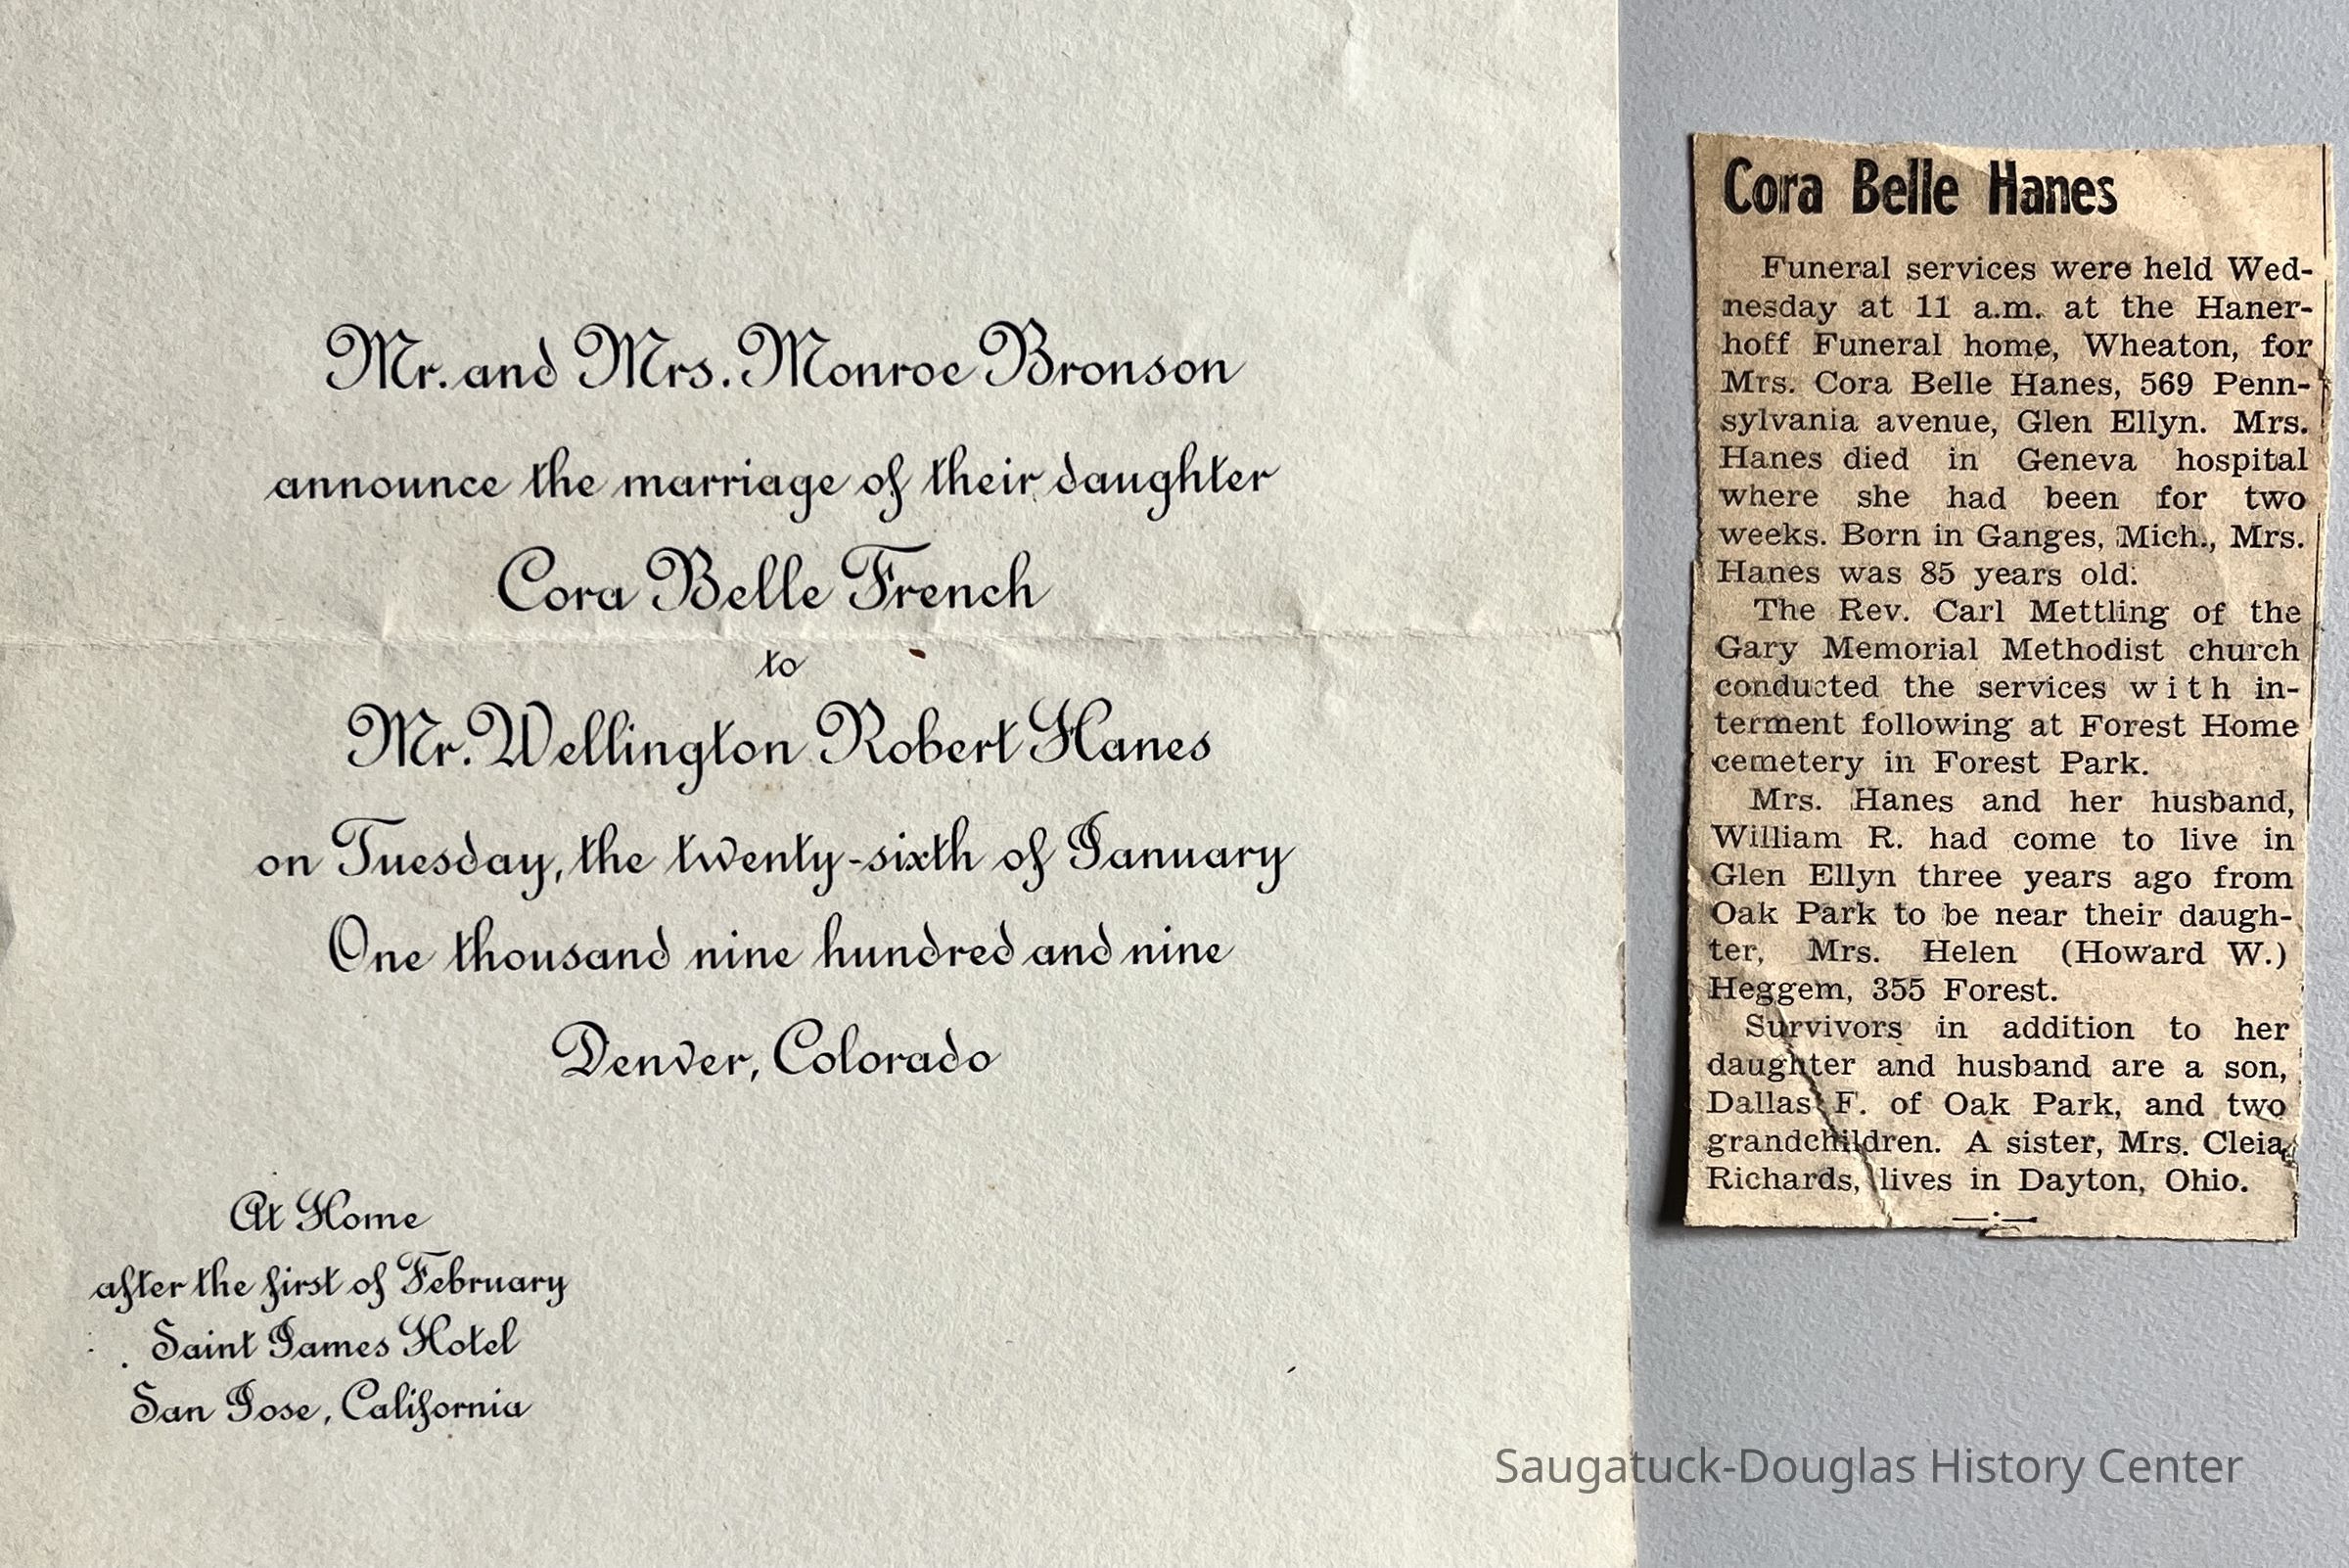 Mr. and Mrs. Monroe Bronson
announce the marriage of their daughter
Cora Belle French
to
Mr. Wellington Robert Hanes
on Tuesday, the twenty-sixth of January
One thousand nine hundred and nine
Denver, Colorado
At Home
after the first of February
Saint James Hotel
San Jose, California
Cora Belle Hanes
Funeral services were held Wed-
nesday at 11 a.m. at the Haner-
hoff Funeral home, Wheaton, for
Mrs. Cora Belle Hanes, 569 Penn-
sylvania avenue, Glen Ellyn. Mrs.
Hanes died in Geneva hospital
where she had been for two
weeks. Born in Ganges, Mich., Mrs.
Hanes was 85 years old.
The Rev. Carl Mettling of the
Gary Memorial Methodist church
conducted the services with in-
terment following at Forest Home
cemetery in Forest Park.
Mrs. Hanes and her husband,
William R. had come to live in
Glen Ellyn three years ago from
Oak Park to be near their daugh-
ter, Mrs. Helen (Howard W.)
Heggem, 355 Forest.
Survivors in addition to her
daughter and husband are a son,
Dallas F. of Oak Park, and two
grandchildren. A sister, Mrs. Cleia
Richards, lives in Dayton, Ohio.
Saugatuck-Douglas History Center